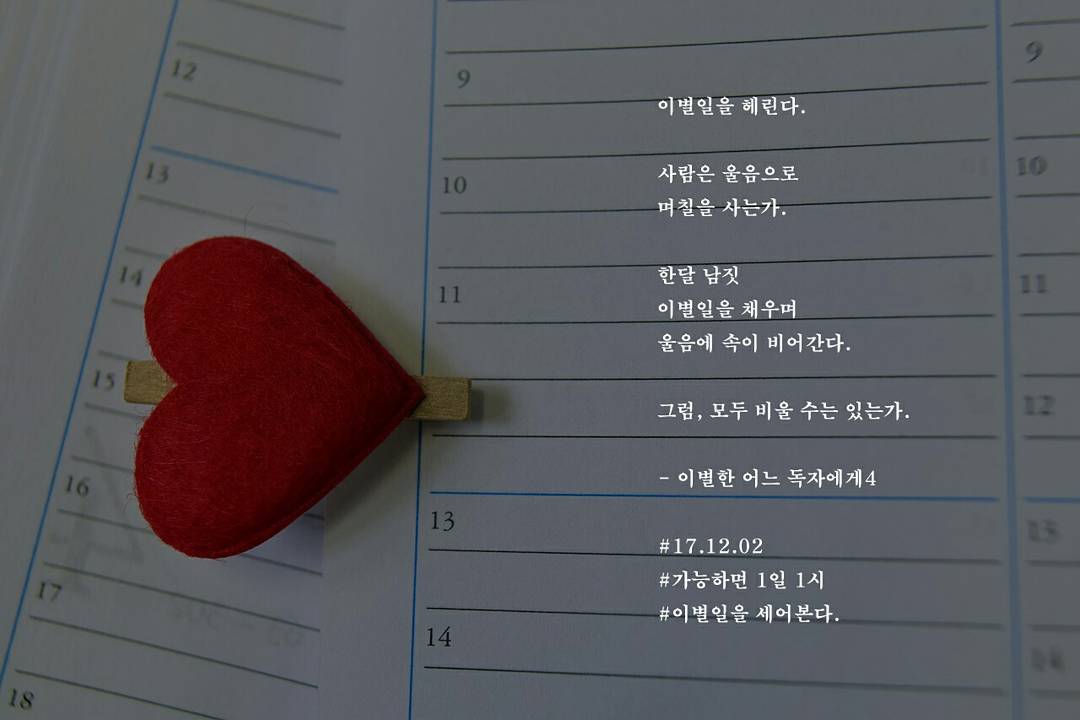 이별일을 헤린다.
사람은 울음으로
며칠을 사는가.
한달 남짓
이별일을 채우며
울음에 속이 비어간다.
그럼, 모두 비울 수는 있는가.
- 이별한 어느 독자에게4
#17.12.02
#가능하면 1일 1시
#이별일을 세어본다.
12
13
14
15
16
17
18
9
10
11
13
14
9
10
11
12
13
14